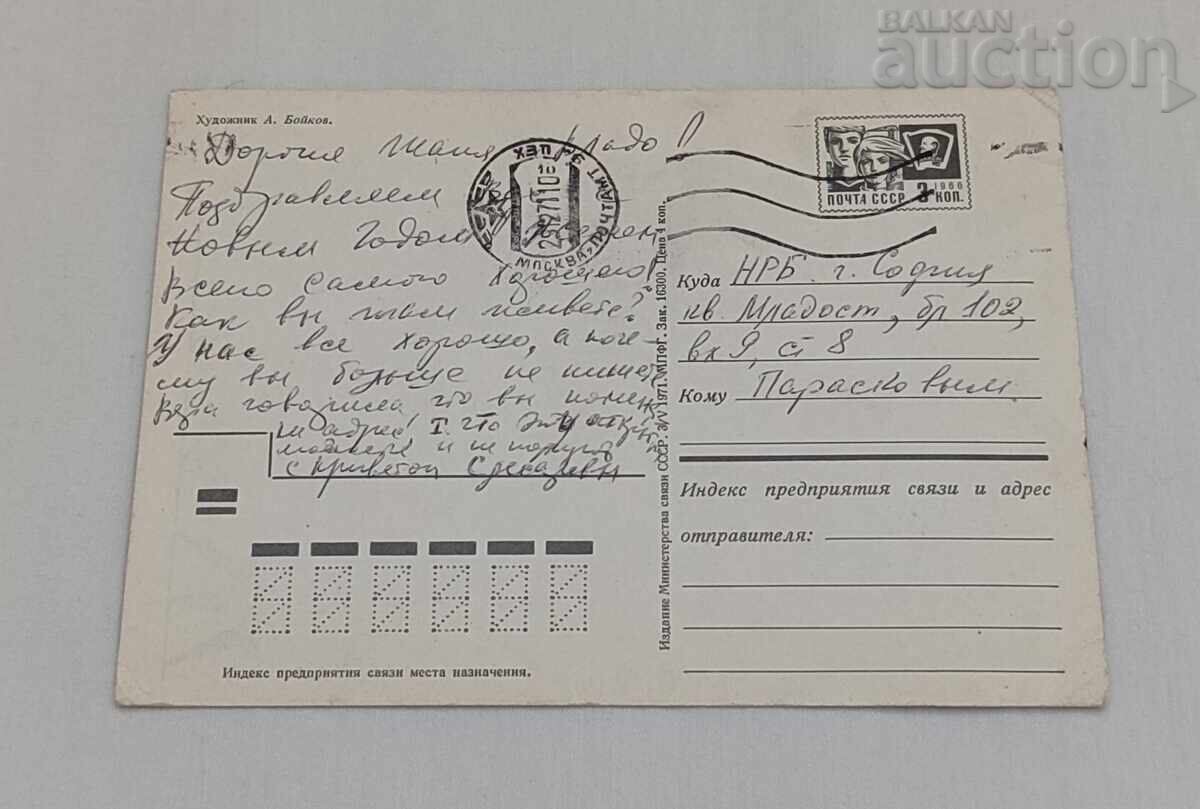 BALKAN
auction
Художник А. Бойков.
Дорогие Жаня, Владо!
Поздравляем Вас с
Новым Годом, желаем
Всего самого Хорошего!
Как вы там живете?
У нас все хорошо, а поче-
му вы больше не пишете
Вера говорила что вы
адрес эту
и не
с приветом
ПОЧТА СССР 3 КОП.
1966
МОСКВА, ПОЧТАМТ
ЦЕХ
Куда НРБ г. София
кв. Младост, бл 102,
вх 9, ст 8
Кому Парасковым.
Индекс предприятия связи и адрес
отправителя:
Издание Министерства связи СССР. 3/V 1971. МПФГ. Зак. 16300. Цена 4 коп.
Индекс предприятия связи места назначения.